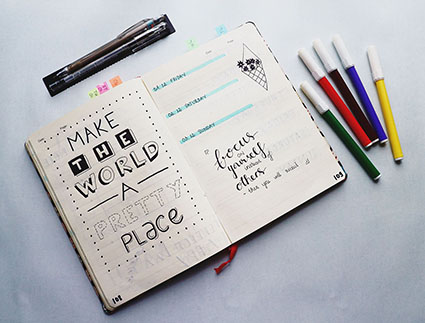 MAKE
THE
WORLD
A
PRETTY
PLACE
02.12 FRIDAY
03.12 SATURDAY
04.12 SUNDAY
focus
on
yourself
instead of
others
then you will succeed